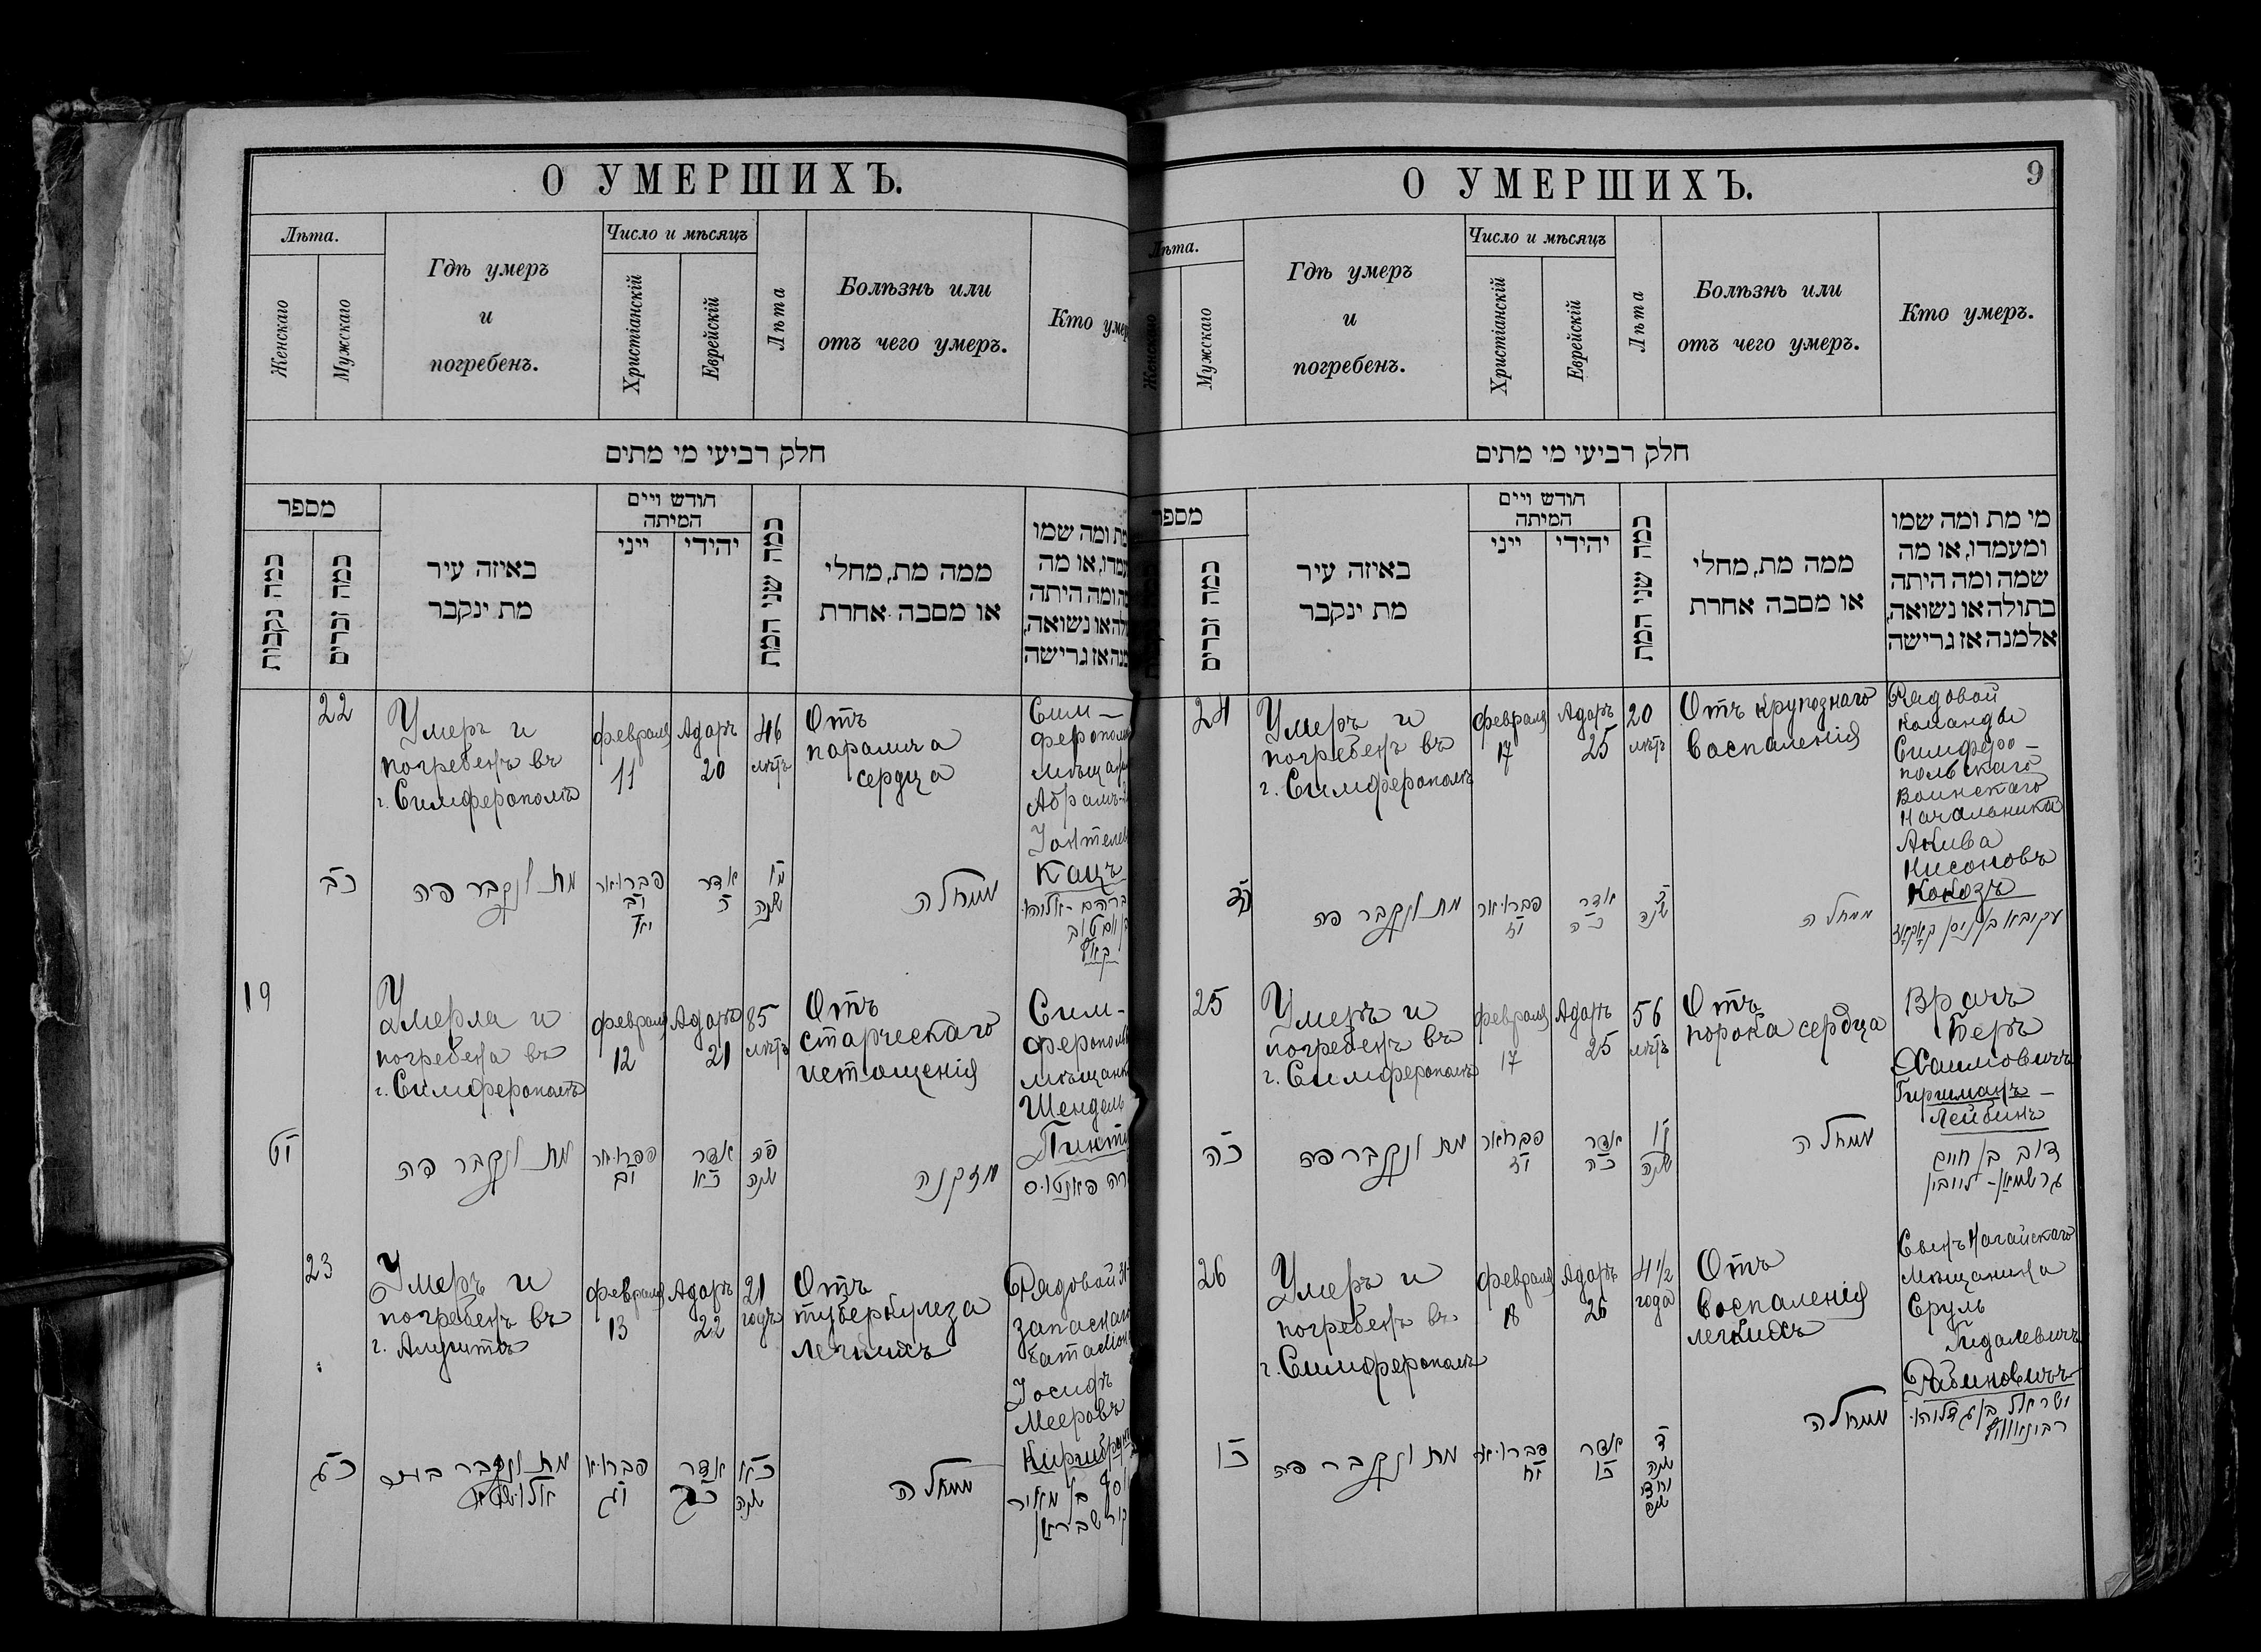 О УМЕРШИХЪ.
Лѣта.
Женскаго
Мужскаго
Гдѣ умеръ
и
погребенъ.
Число и мѣсяцъ
Христіанскій
Еврейскій
Лѣта
Болѣзнь или
отъ чего умеръ.
Кто умер
חלק רביעי מי מתים
מספר
כמה נקבות
כמה זכרים
באיזה עיר
מת ינקבר
חודש ויים
המיתה
ייני
יהודי
כמה שני המת
ממה מת, מחלי
או מסבה אחרת
מת ומה שמו
22
Умеръ и
погребенъ въ
г. Симферополѣ
февраля
11
Адаръ
20
46
лѣтъ
Отъ
паралича
сердца
Сим-
ферополь
мѣщан
Абрамъ
Кацъ
כב
מת ונקבר פה
אדר
שנה
ממחלה
19
Умерла и
погребена въ
г. Симферополѣ
февраля
12
Адаръ
21
85
лѣтъ
Отъ
старческаго
истощенія
Сим-
ферополь
мѣщанк
Шендель
יט
מת ונקבר פה
פברואר
יב
אדר
כא
פה
שנה
מזקנה
23
Умеръ и
погребенъ въ
г. Алуштѣ
февраля
13
Адаръ
22
21
годъ
Отъ
туберкулеза
легкихъ
Рядовой
запаснаго
баталіон
Іосифъ
Мееровъ
כג
מת ונקבר
יג
אדר
כא
שנה
ממחלה
בן מאיר
О УМЕРШИХЪ.
9
Лѣта.
Женскаго
Мужскаго
Гдѣ умеръ
и
погребенъ.
Число и мѣсяцъ
Христіанскій
Еврейскій
Лѣта
Болѣзнь или
отъ чего умеръ.
Кто умеръ.
חלק רביעי מי מתים
מספר
כמה זכרים
באיזה עיר
מת ינקבר
חודש ויים
המיתה
ייני
יהידי
כמה שני המת
ממה מת, מחלי
או מסבה אחרת
מי מת ומה שמו
ומעמדו, או מה
שמה ומה היתה
בתולה או נשואה,
אלמנה אז גרישה
24
Умеръ и
погребенъ въ
г. Симферополѣ
февраля
17
Адаръ
25
20
лѣтъ
Отъ крупознаго
воспаленія
Рядовой
команды
Симферо-
польскаго
Воинскаго
Начальника
Акива
Нисоновъ
כד
מת ונקבר פה
פברואר
יז
אדר
כה
כ
שנה
ממחלה
עקיבא בן ניסן
25
Умеръ и
погребенъ въ
г. Симферополѣ
февраля
17
Адаръ
25
56
лѣтъ
Отъ
порока сердца
Врачъ
Беръ
Хаимовичъ
Гиршманъ-
Лейбинъ
כה
מת ונקבר פה
פברואר
יז
אדר
כה
נו
שנה
ממחלה
דוב בן חיים
26
Умеръ и
погребенъ въ
г. Симферополѣ
февраля
18
Адаръ
26
4 1/2
года
Отъ
воспаленія
легкихъ
Сынъ Ногайскаго
Мѣщанина
Сруль
Гидалевичъ
Рабиновичъ
כו
מת ונקבר פה
פברואר
יח
אדר
כו
ד
שנה
וחצי
שנה
ממחלה
ישראל בן גדליהו
רבינאוויץ